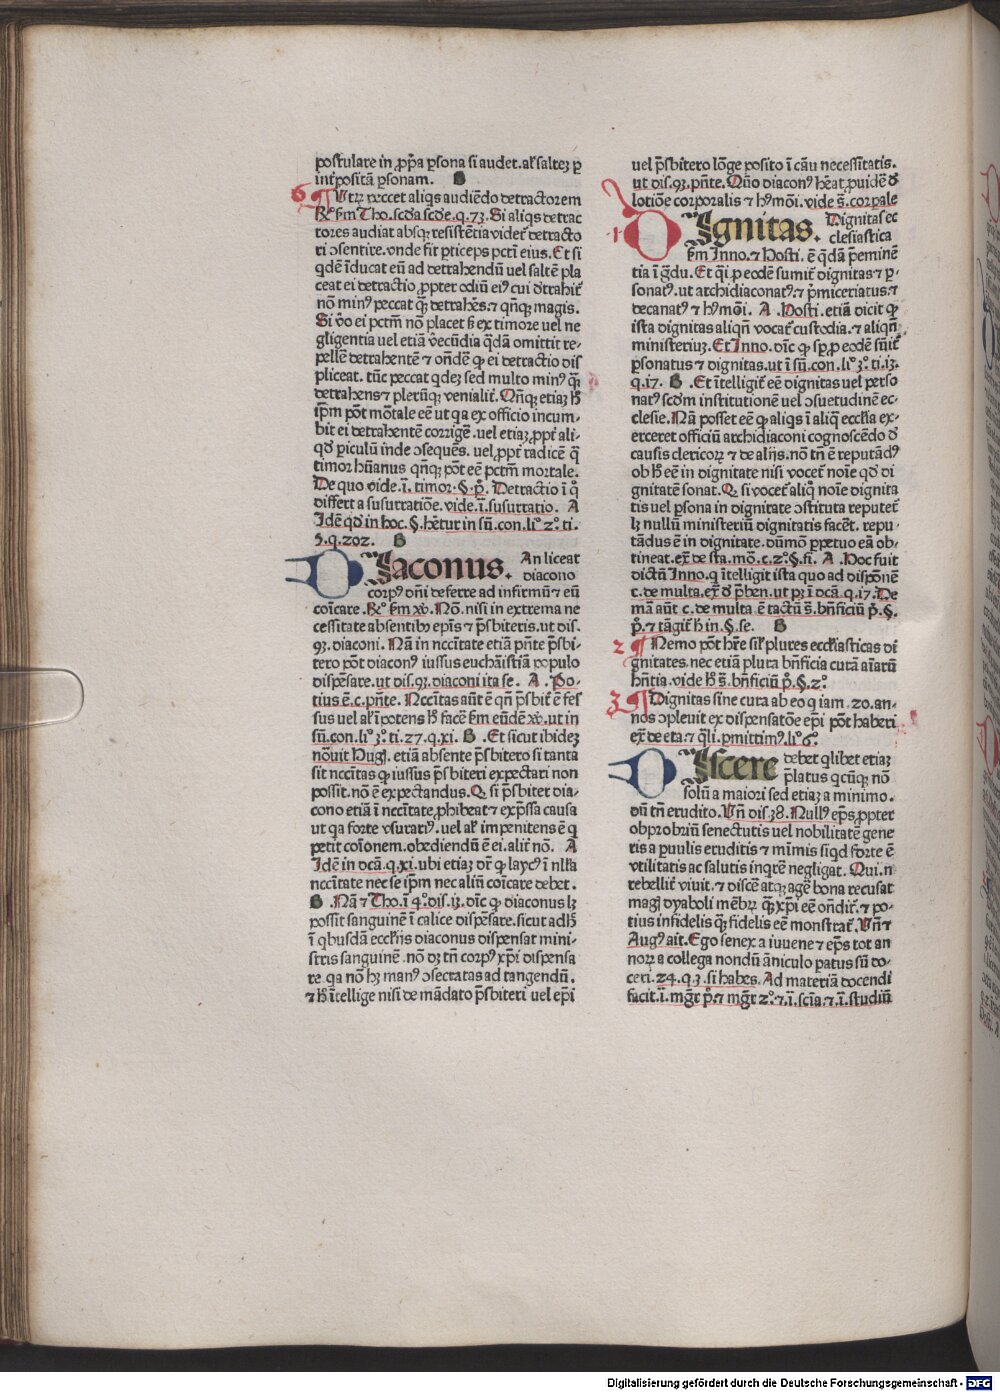 postulare in ꝓpͥa ꝑsona si audet. alˀ saltez ꝑ
int̓positā ꝑsonam. B
6 ¶ Vtꝝ peccet aliqͥs audiēdo detractorem
R̓. ẜm Tho. scd̓a scd̓e. q. 73. Si aliqͥs detrac
tores audiat absqꝫ resistētia videt̓ detracto
ri ↄsentire. vnde fit ꝑticeps pctī eius. Et si
qͥdē īducat eū ad detrahendū uel saltē pla
ceat ei detractio ꝓpter odiū eiꝰ cui dt̓rahit̓
nō minꝰ peccat qꝫ detrahēs. ⁊ qn̄qꝫ magis.
Si v̓o ei pctm̄ nō placet sꝫ ex timore uel ne
gligentia uel etiā v̓ecūdia qͣdā omittit re-
pellē detrahentē ⁊ ondē̓ ꝙ ei detractio dis
pliceat. tūc peccat qͥdeꝫ sed multo minꝰ qꝫ
detrahens ⁊ plerūqꝫ venialit̓. Qn̄qꝫ etiaꝫ hͦ
ip̄m pōt mōtale eē ut qͣ ex officio incum-
bit ei detrahentē corrigē̓. uel etiaꝫ ꝓpt̓ ali-
qd̓ piculū inde ↄsequēs. uel ꝓpt̓ radicē qͣ
timor hūanus qn̄qꝫ pōt eē pctm̄ mortale.
De quo vide. ī. timor. §. pͦ. Detractio ī qͦ
differt a susurratiōe. vide. ī. susurratio. A
Idē qd̓ in hoc. §. hētur in sū. con. liͦ. 2ͦ. ti.
5. q. 202. B
DIaconus. An liceat
diacono
corpꝰ dn̄i deferre ad infirmū ⁊ eū
cōicare. R̓. ẜm
Nō. nisi in extrema ne
cessitate absentibꝫ ep̄is ⁊ p̄sbiteris. ut dis.
93. diaconi. Nā in nccītate etiā pn̄te p̄sbi-
tero pōt diaconꝰ iussus euchāistiā populo
dispēsare. ut dis. 93. diaconi ita se. A. Po-
tius ē. c. pn̄te. Nccītas aūt ē qn̄ p̄sbit̓ ē fes
sus uel alˀ īpotens hͦ facē̓ ẜm eūdē
ut in
sū. con. liͦ. 3ͦ. ti. 27. q. xi. B. Et sicut ibideꝫ
nōuit Hug. etiā absente p̄sbitero si tanta
sit nccītas ꝙ iussus p̄sbiteri expectari non
possit. nō ē expectandus. Qͩ si p̄sbiter dia-
cono etiā ī nccītate ꝓhibeat ⁊ exp̄ssa causa
ut qͣ forte vsurariꝰ. uel alˀ impenitens ē qͥ
petit coīonem. obediendū ē ei. alit̓ nō. A
Idē in dcā. q. xi. ubi etiaꝫ dr̄ ꝙ laycꝰ ī nll̓a
nccītate nec se ip̄m nec aliū coīcare debet.
B. Nā ⁊ Tho. ī 4ͦ. dis. 13. dīc ꝙ diaconus lꝫ
possit sanguinē ī calice dispēsare. sicut adhͨ
ī qͥbusdā eccl̓ijs diaconus dispensat mini-
stris sanguinē. nō dꝫ tn̄ corpꝰ xp̄i dispensa
re. qͣ nō hꝫ manꝰ ↄsecratas ad tangendū.
⁊ hͦ ītellige nisi de mādato p̄sbiteri uel ep̄i
uel p̄sbitero lōge posito ī cāu necessitatis.
ut dis. 93. pn̄te. Qn̄o diaconꝰ hēat ꝓuidē̓ d̓
lotiōe corporalis ⁊ hꝰmōi. vide s̄. corpale
1 DIgnitas. Dignitas ec
clesiastica
ẜm Inno. ⁊ Hosti. ē qͣdā p̄eminē
tia ī gͣdu. Et qͥ ꝓ eodē sumit̓ dignitas ⁊ ꝑ-
sonatꝰ. ut archidiaconatꝰ. ⁊ pͥmiceriatus. ⁊
decanatꝰ ⁊ hꝰmōi. A. Hosti. etiā dicit ꝙ
ista dignitas aliqn̄ vocat̓ custodia. ⁊ aliqn̄
ministeriuꝫ. Et Inno. dīc ꝙ sꝑ ꝓ eodē sūit̓
ꝑsonatus ⁊ dignitas. ut ī sū. con. liͦ. 3ͦ. ti. 13.
q. 17. B. Et ītelligit̓ eē dignitas uel perso
natꝰ scd̓m institutionē uel ↄsuetudinē ec-
clesie. Nā posset eē ꝙ aliqͥs ī aliqͣ eccl̓ia ex-
erceret officiū archidiaconi cognoscēdo d̓
causis clericoꝝ ⁊ de alijs. nō tn̄ ē reputādꝰ
ob hͦ eē in dignitate nisi vocet̓ noīe qd̓ di
gnitatē sonat. Qͩ si vocet̓ aliqͦ noīe dignita
tis uel ꝑsona in dignitate ↄstituta reputet̓
lꝫ nullū ministeriū dignitatis facēt. repu-
tādus ē in dignitate. dūmō ꝑpetuo eā ob-
tineat. ex̄. de sta. mō. c. 2ͦ. §. fi. A. Hoc fuit
dictū Inno. qͥ ītelligit ista quo ad dispōnē
c. de multa. ex̄. d̓ p̄ben. ut pꝫ ī dcā. q. 17. De
mā aūt c. de multa ē tactū s̄. bn̄ficiū pͦ. §.
pͦ. ⁊ tāgit̓ hͦ in. §. se. B
2 ¶ Nemo pōt hr̄e sil̓ plures eccl̓iasticas di
gnitates. nec etiā plura bn̄ficia curā aīarū
hn̄tia. vide hͦ s̄. bn̄ficiū pͦ. §. 2ͦ.
3 ¶ Dignitas sine cura ab eo qͥ iam. 20. an-
nos ↄpleuit ex dispensatōe ep̄i pōt haberi
ex̄. de eta. ⁊ qͣli. ꝑmittimꝰ. liͦ. 6ͦ.
DIscere debet qͥlibet etiaꝫ
p̄latus qͥcūqꝫ nō
solū a maiori sed etiaꝫ a minimo.
dū tn̄ erudito. Vn̄ dis. 38. Nullꝰ ep̄s ꝓpter
obprobriū senectutis uel nobilitatē gene
ris a ꝑuulis eruditis ⁊ mīmis siqͥd forte ē
vtilitatis ac salutis inqͥrē̓ negligat. Qui. n̄
rebellit̓ viuit. ⁊ discē̓ atqꝫ agē̓ bona recusat
magꝭ dyaboli mēbꝝ qꝫ xp̄i eē ondit̓. ⁊ po-
tius infidelis qꝫ fidelis eē monstrat̓. Vn̄ ⁊
Augꝰ ait. Ego senex a iuuene ⁊ ep̄s tot an
noꝝ a collega nondū āniculo ꝑatus sū do-
ceri. 24. q. 3. si habes. Ad materiā docendi
facit. ī. mgr̄ pͦ. ⁊ mgr̄ 2ͦ. ⁊. ī. scīa. ⁊. ī. studiū
Digitalisierung gefördert durch die Deutsche Forschungsgemeinschaft - DFG